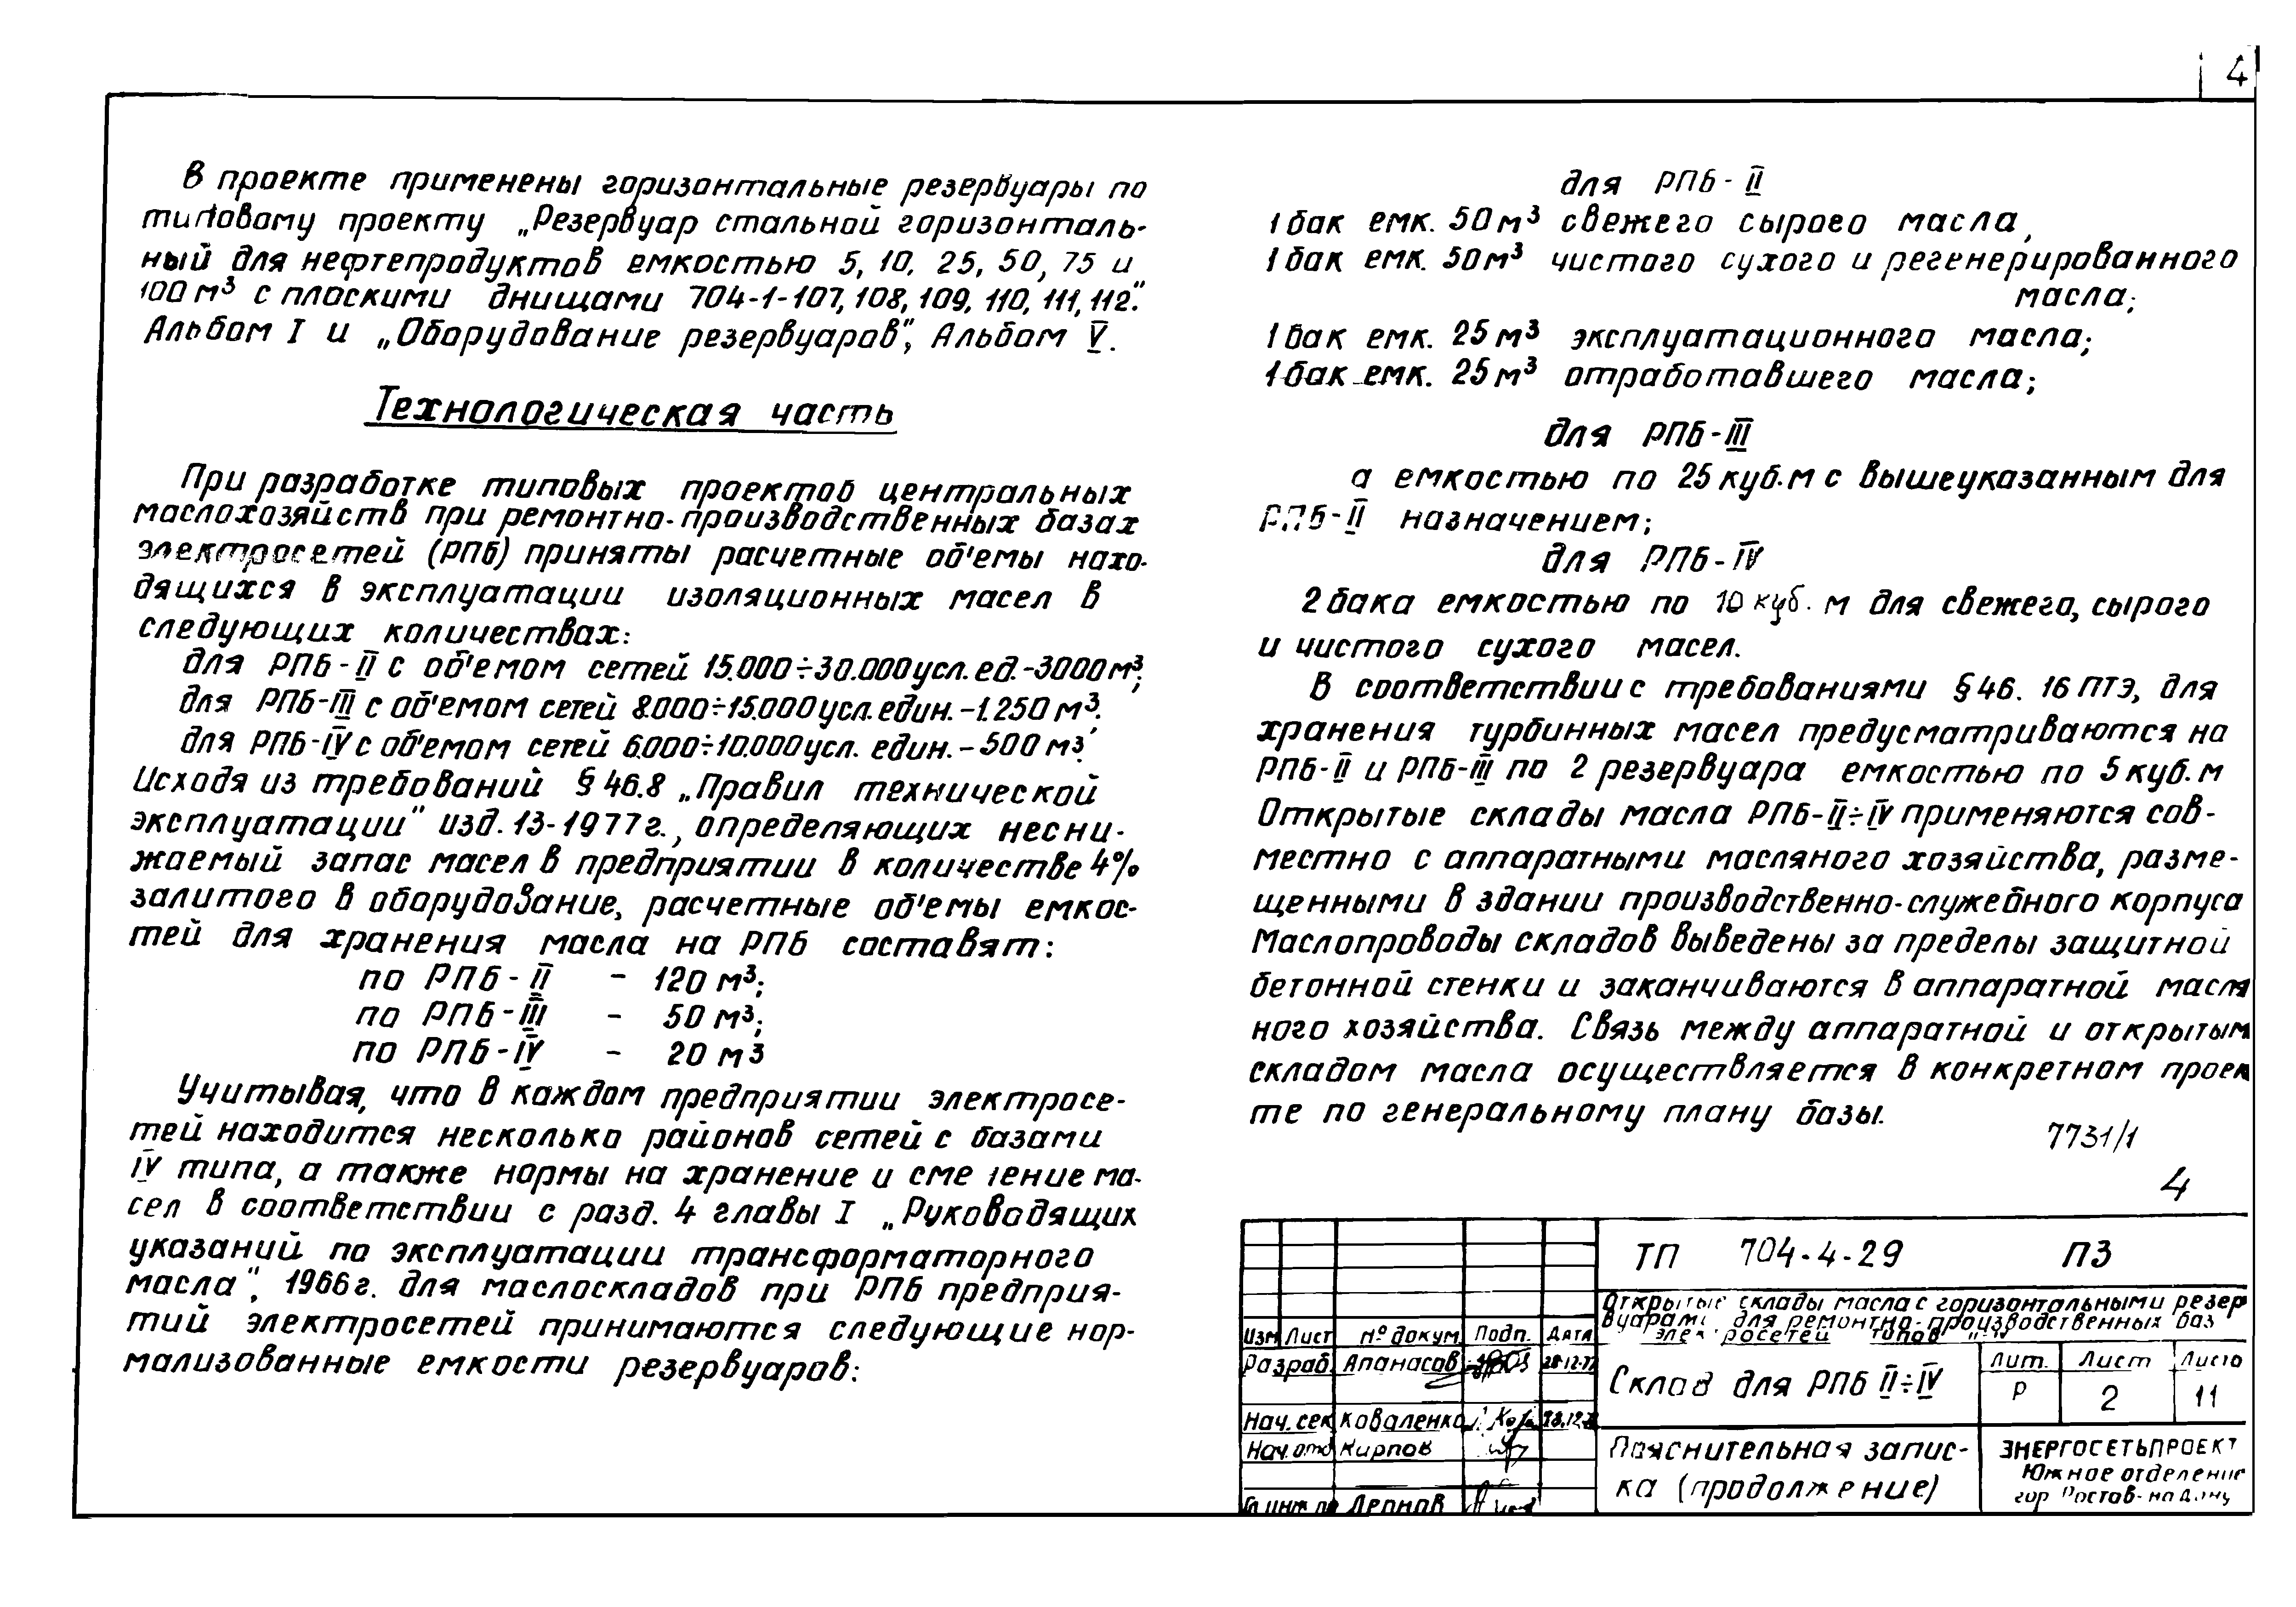 4
В проекте применены горизонтальные резервуары по
типовому проекту „Резервуар стальной горизонталь-
ный для нефтепродуктов емкостью 5, 10, 25, 50, 75 и
100 м³ с плоскими днищами 704-1-107, 108, 109, 110, 111, 112".
Альбом I и „Оборудование резервуаров", Альбом V.
Технологическая часть
При разработке типовых проектов центральных
маслохозяйств при ремонтно-производственных базах
электросетей (РПБ) приняты расчетные об'емы нахо-
дящихся в эксплуатации изоляционных масел в
следующих количествах:
для РПБ-II с об'емом сетей 15.000÷30.000 усл. ед.-3000 м³;
для РПБ-III с об'емом сетей 8.000÷15.000 усл. един.-1.250 м³;
для РПБ-IV с об'емом сетей 6.000÷10.000 усл. един.-500 м³.
Исходя из требований § 46.8 „Правил технической
эксплуатации" изд. 13-1977г., определяющих несни-
жаемый запас масел в предприятии в количестве 4%
залитого в оборудование, расчетные об'емы емкос-
тей для хранения масла на РПБ составят:
по РПБ-II - 120 м³;
по РПБ-III - 50 м³;
по РПБ-IV - 20 м³
Учитывая, что в каждом предприятии электросе-
тей находится несколько районов сетей с базами
IV типа, а также нормы на хранение и сме ение ма-
сел в соответствии с разд. 4 главы I „Руководящих
указаний по эксплуатации трансформаторного
масла", 1966г. для маслоскладов при РПБ предприя-
тий электросетей принимаются следующие нор-
мализованные емкости резервуаров:
для РПБ-II
1 бак емк. 50 м³ свежего сырого масла,
1 бак емк. 50 м³ чистого сухого и регенерированного
масла;
1 бак емк. 25 м³ эксплуатационного масла;
1 бак емк. 25 м³ отработавшего масла;
для РПБ-III
а емкостью по 25 куб. м с вышеуказанным для
РПБ-II назначением;
для РПБ-IV
2 бака емкостью по 10 куб. м для свежего, сырого
и чистого сухого масел.
В соответствии с требованиями § 46. 16 ПТЭ, для
хранения турбинных масел предусматриваются на
РПБ-II и РПБ-III по 2 резервуара емкостью по 5 куб. м
Открытые склады масла РПБ-II÷IV применяются сов-
местно с аппаратными масляного хозяйства, разме-
щенными в здании производственно-служебного корпуса
Маслопроводы складов выведены за пределы защитной
бетонной стенки и заканчиваются в аппаратной масля
ного хозяйства. Связь между аппаратной и открытым
складом масла осуществляется в конкретном проек
те по генеральному плану базы.
7731/1
4
ТП 704-4-29 ПЗ
Открытые склады масла с горизонтальными резер
вуарами для ремонтно-производственных баз
электросетей типов II-IV
Изм Лист № докум. Подп. Дата
Разраб. Апанасов 28-12-77
Нач. сек Коваленко 28.12.
Нач. отд Кирпов
Гл инж пр Лернов
Склад для РПБ II÷IV
Лит. Лист Листо
Р 2 11
Пояснительная запис-
ка (продолжение)
ЭНЕРГОСЕТЬПРОЕКТ
Южное отделение
гор Ростов-на Дону